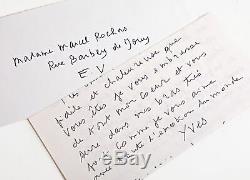 Madame Marcel Rochas
Rue Barbey de Jouy
E.V.
facile et chaleureuse que
vous êtes je vous embrasse
de tout mon cœur et vous
dans mes bras très
fort comme je vous aime
toute l'émotion du monde
YVES